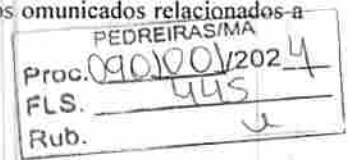 os omunicados relacionados a
PEDREIRAS/MA
Proc. 0901001/2024
FLS. 445
Rub.